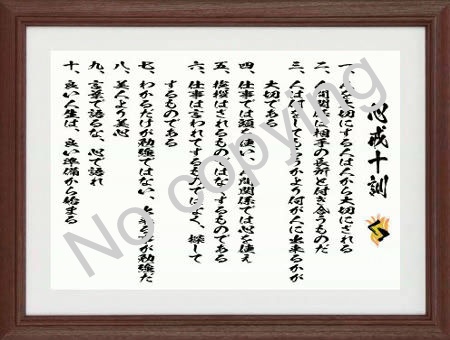 心戒十訓
一、人を大切にする人は人から大切にされる
二、人間関係は相手の長所と付き合うものだ
三、人は何をしてもらうかより何が人に出来るかが
大切である
四、仕事では頭を使い、人間関係では心を使え
五、挨拶はされるものではなくするものである
六、仕事は言われてするものではなく、探して
するものである
七、わかるだけが勉強ではない、出来る事が勉強だ
八、美人より美心
九、言葉で語るな、心で語れ
十、良い人生は、良い準備から始まる
No copying